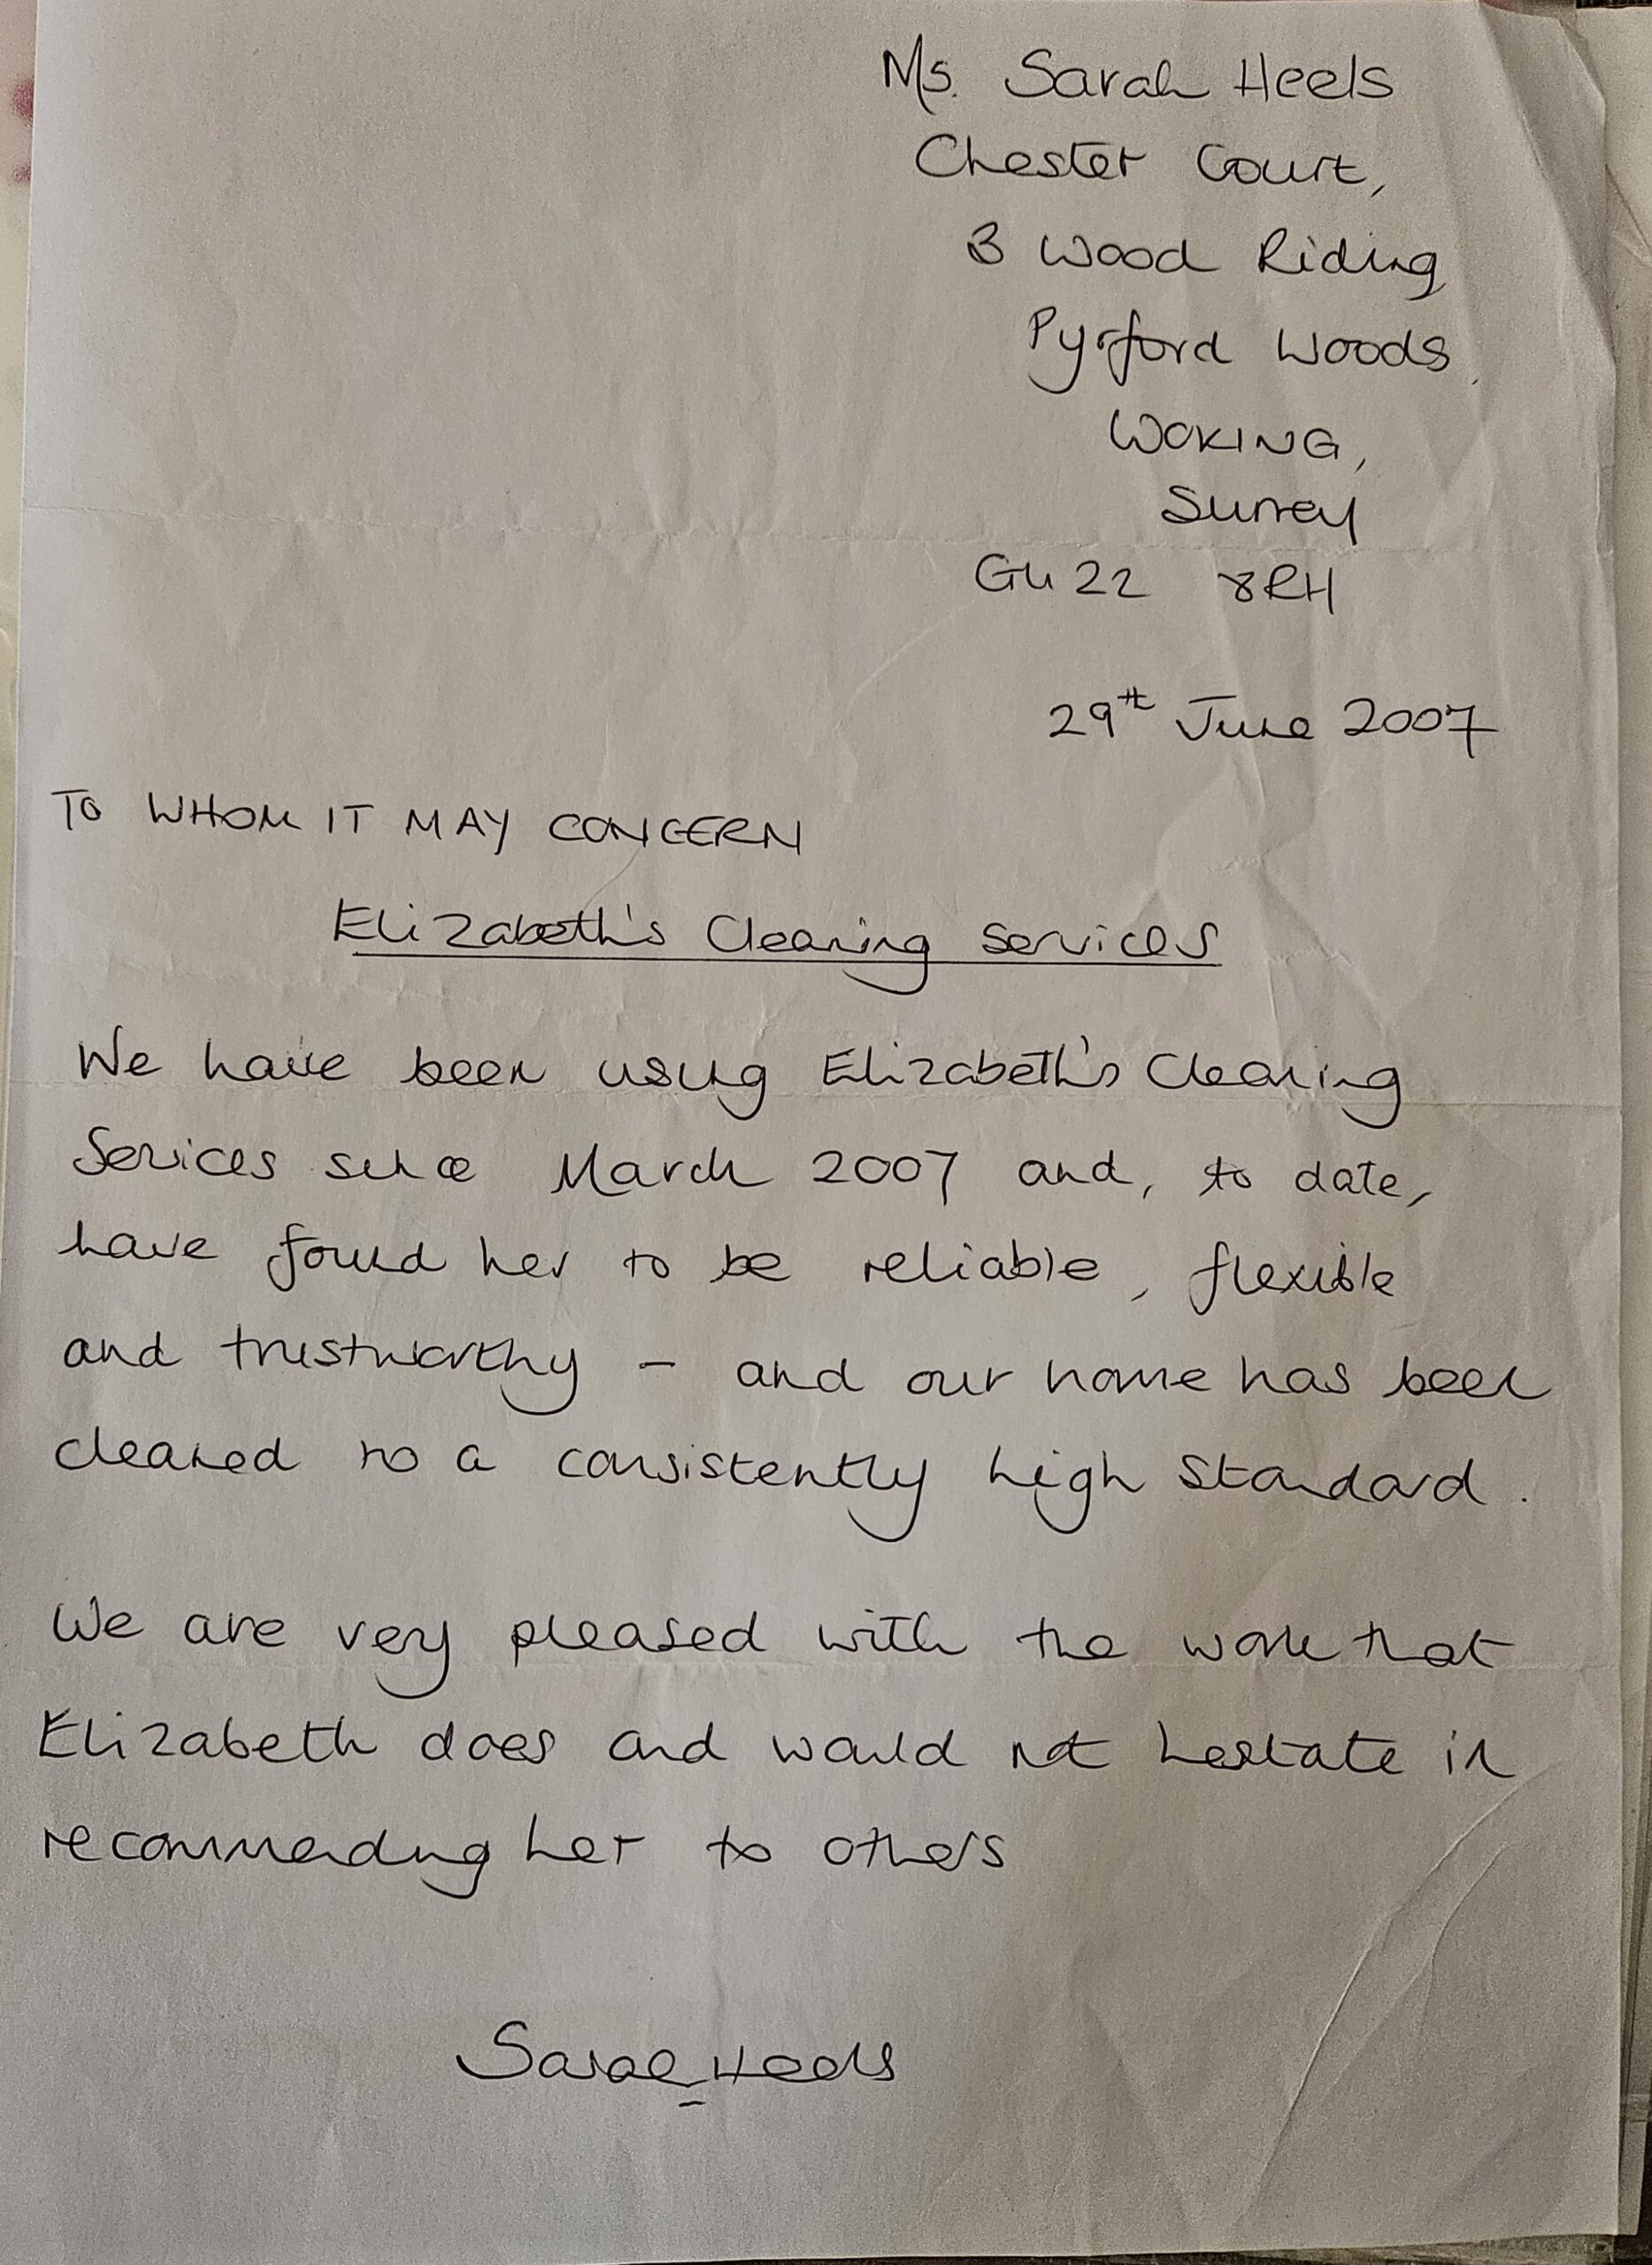 Ms. Sarah Heels
Chester Court,
3 Wood Riding
Pyrford Woods,
WOKING,
Surrey
GU22 8RH
29th June 2007
TO WHOM IT MAY CONCERN
Elizabeth's Cleaning Services
We have been using Elizabeth's Cleaning
Services since March 2007 and, to date,
have found her to be reliable, flexible
and trustworthy - and our home has been
cleaned to a consistently high standard.
We are very pleased with the work that
Elizabeth does and would not hesitate in
recommending her to others
Sarah Heels